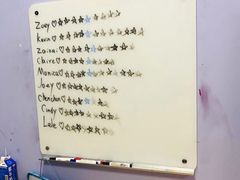 Zoey ♡
Kevin ♡
Zaina ♡
Claire ♡
Monica ♡
Joey ♡
Chenchen ♡
Cindy ♡
Lele ♡